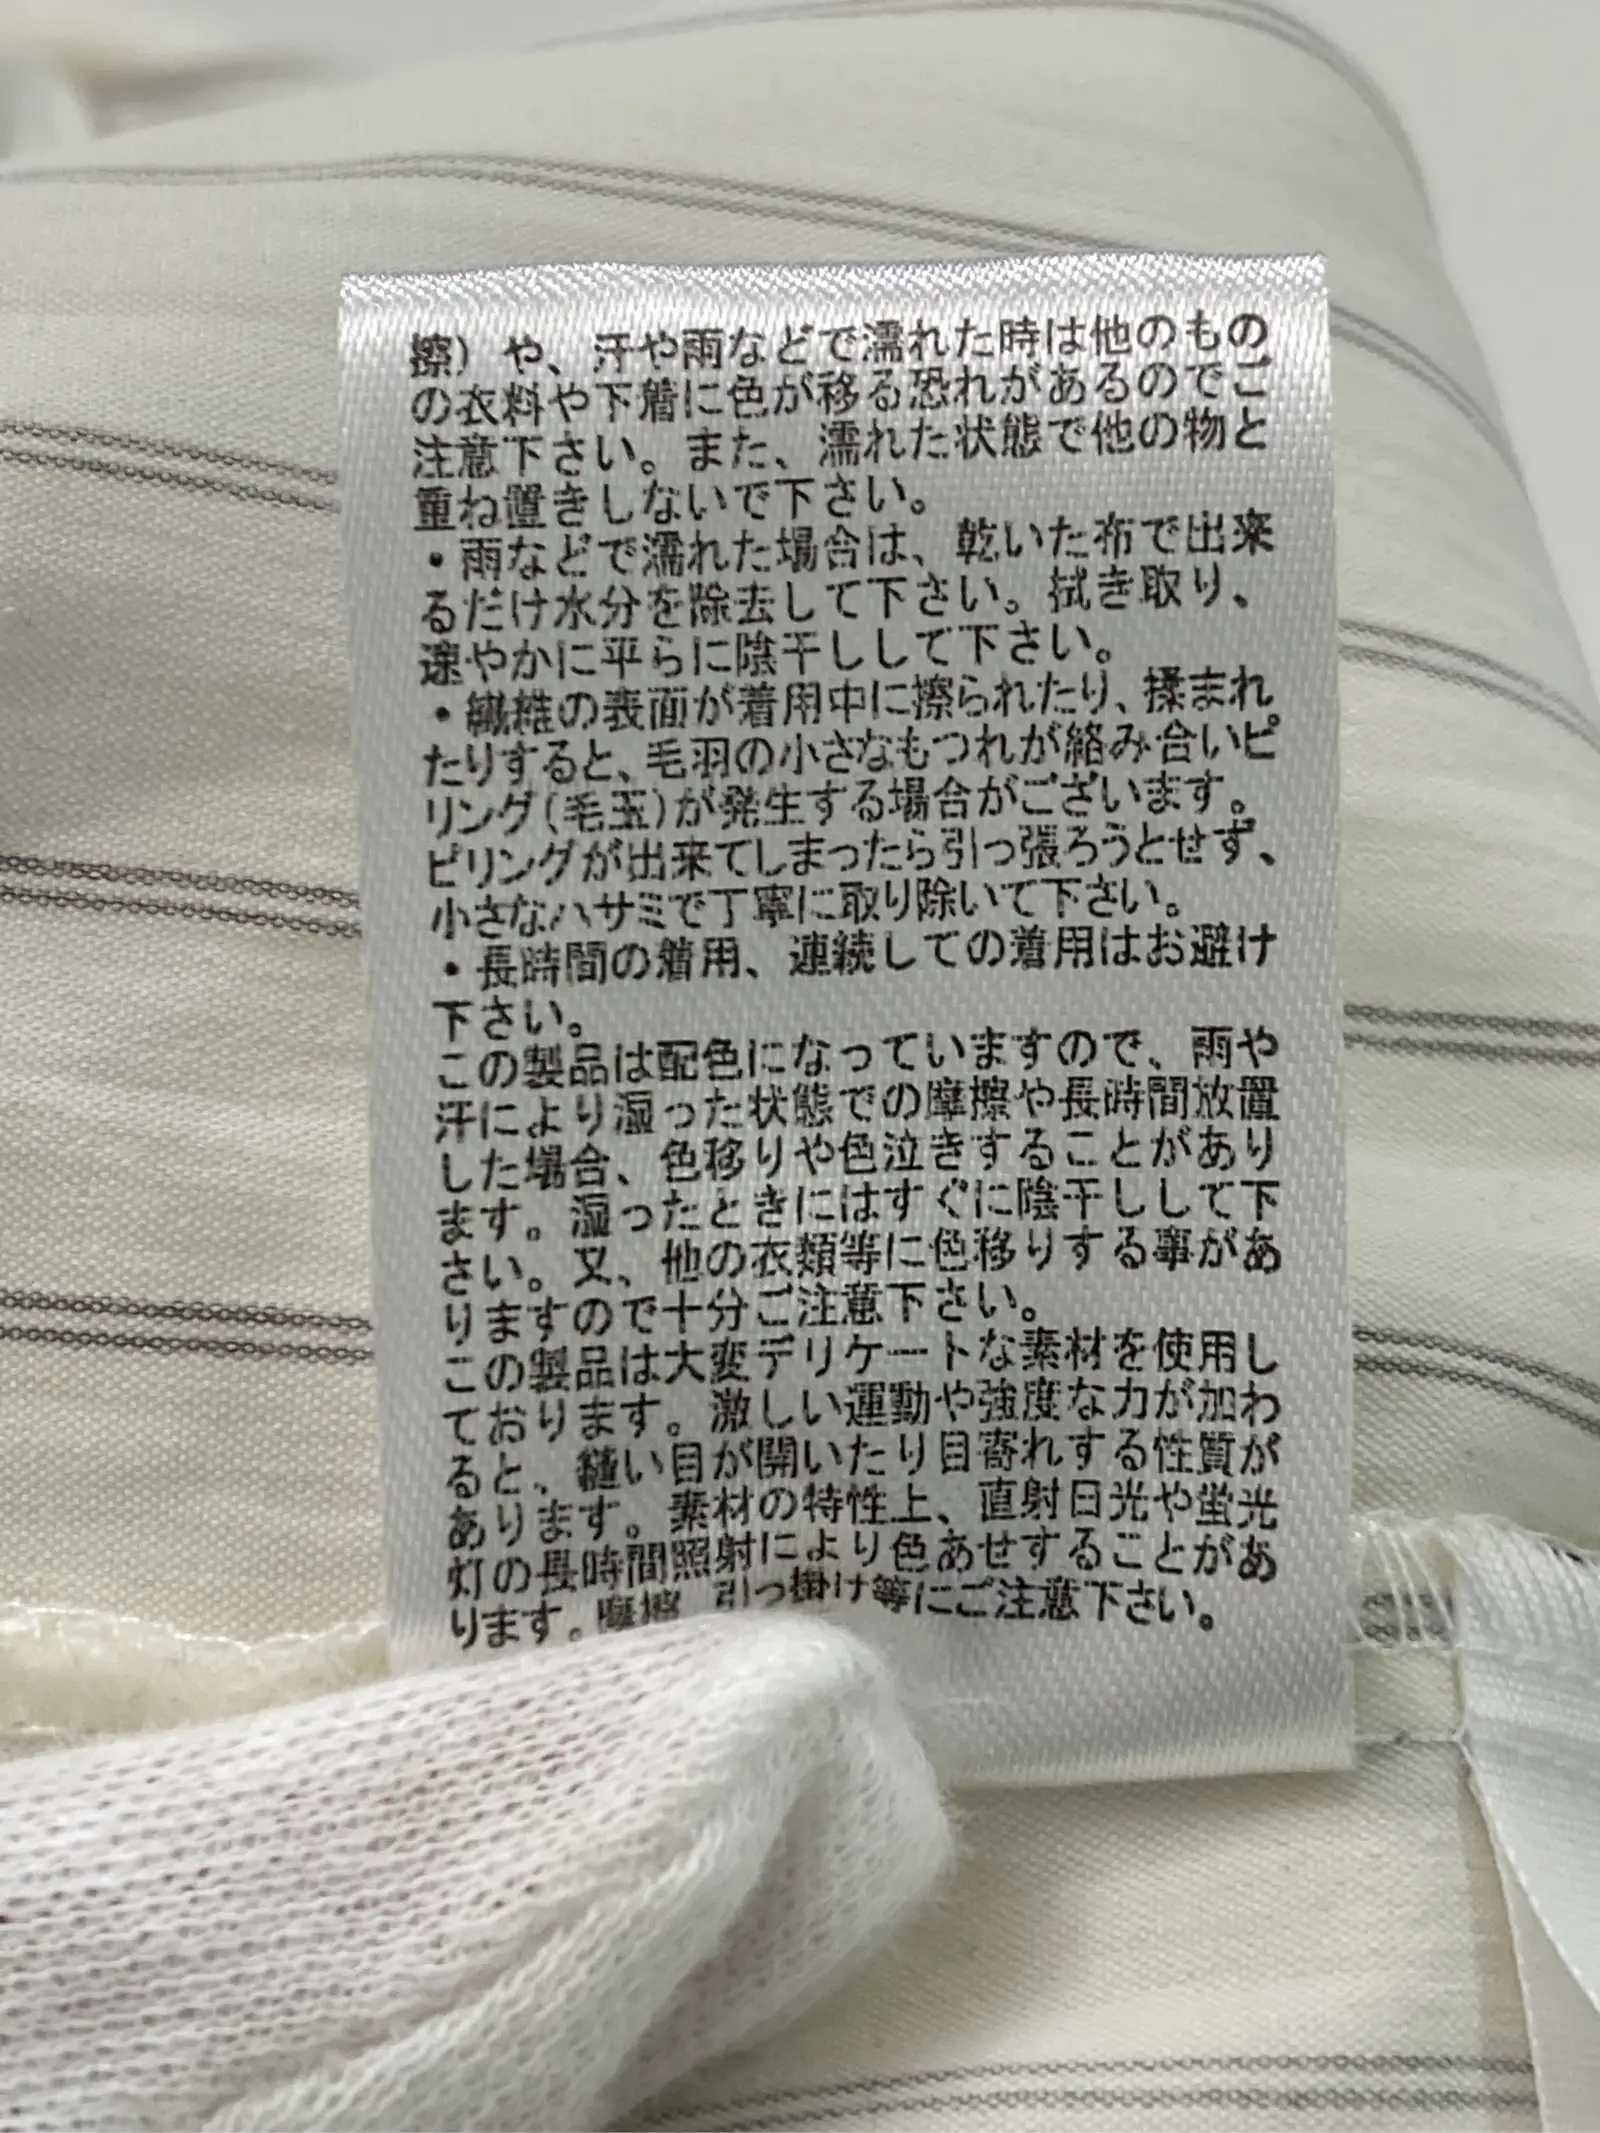 擦）や、汗や雨などで濡れた時は他のもの
の衣料や下着に色が移る恐れがあるのでご
注意下さい。また、濡れた状態で他の物と
重ね置きしないで下さい。
・雨などで濡れた場合は、乾いた布で出来
るだけ水分を除去して下さい。拭き取り、
速やかに平らに陰干しして下さい。
・繊維の表面が着用中に擦られたり、揉まれ
たりすると、毛羽の小さなもつれが絡み合いピ
リング(毛玉)が発生する場合がございます。
ピリングが出来てしまったら引っ張ろうとせず、
小さなハサミで丁寧に取り除いて下さい。
・長時間の着用、連続しての着用はお避け
下さい。
この製品は配色になっていますので、雨や
汗により湿った状態での摩擦や長時間放置
した場合、色移りや色泣きすることがあり
ます。湿ったときにはすぐに陰干しして下
さい。又、他の衣類等に色移りする事があ
りますので十分ご注意下さい。
この製品は大変デリケートな素材を使用し
ております。激しい運動や強度な力が加わ
ると、縫い目が開いたり目寄れする性質が
あります。素材の特性上、直射日光や蛍光
灯の長時間照射により色あせすることがあ
ります。摩擦、引っ掛け等にご注意下さい。